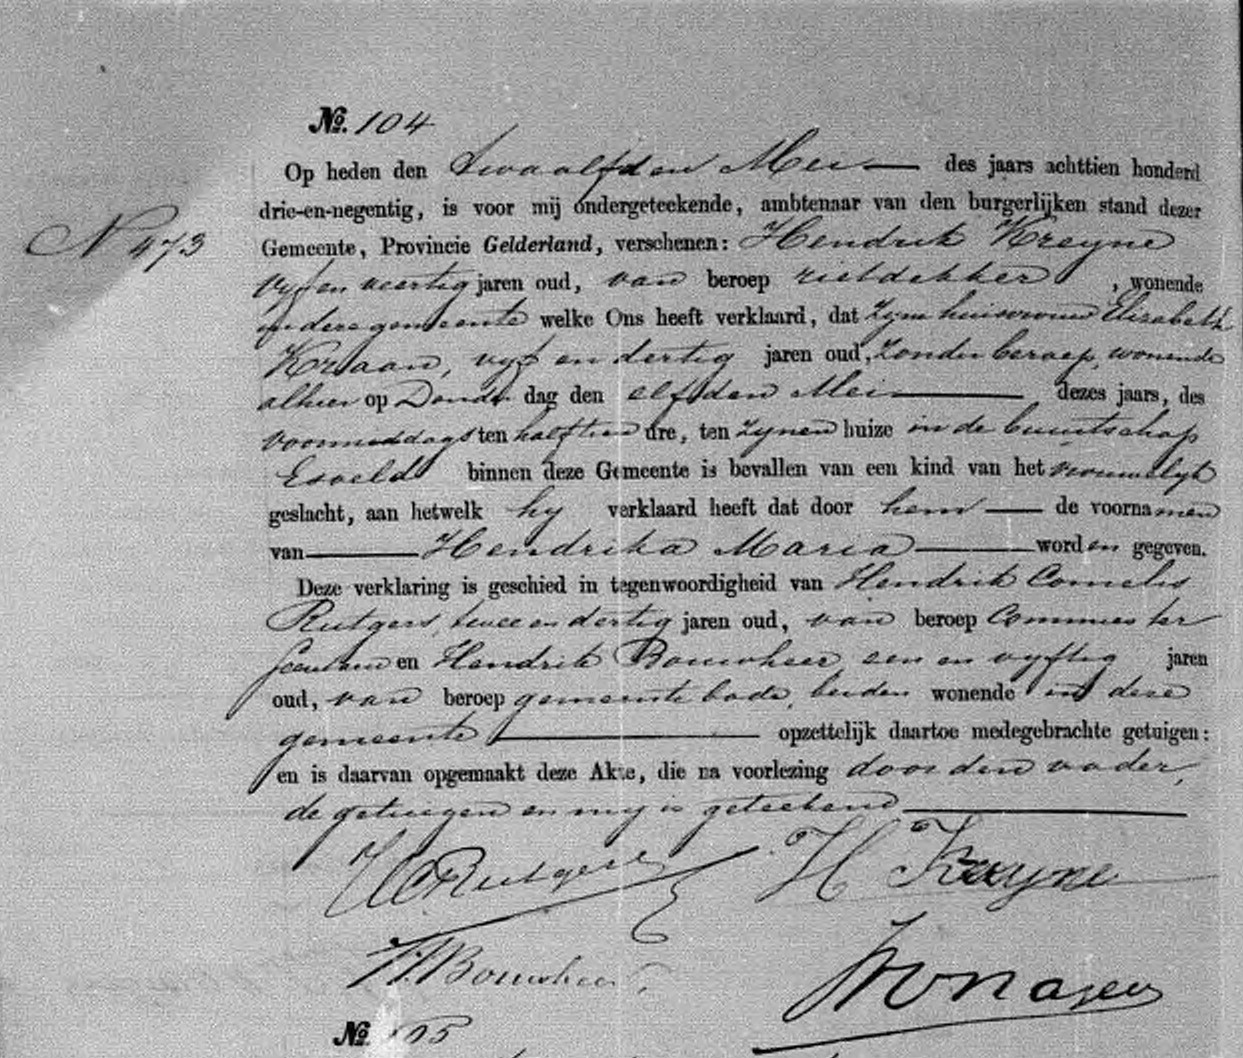 No. 104
Op heden den twaalfden Mei des jaars achttien honderd
drie-en-negentig, is voor mij ondergeteekende, ambtenaar van den burgerlijken stand dezer
N 473
Gemeente, Provincie Gelderland, verschenen: Hendrik Kreyne
vyf en veertig jaren oud, van beroep rietdekker, wonende
in deze gemeente welke Ons heeft verklaard, dat zyne huisvrouw Elizabeth
Kraan, vyf en dertig jaren oud, zonder beroep, wonende
alhier op Donder dag den elfden Mei dezes jaars, des
voormiddags ten half tien ure, ten zynen huize in de buurtschap
Esveld binnen deze Gemeente is bevallen van een kind van het vrouwelyk
geslacht, aan hetwelk hy verklaard heeft dat door hem de voornamen
van Hendrika Maria worden gegeven.
Deze verklaring is geschied in tegenwoordigheid van Hendrik Cornelis
Rutgers, twee en dertig jaren oud, van beroep Commies ter
Secretarie en Hendrik Bouwheer, een en vyftig jaren
oud, van beroep gemeente bode, beiden wonende in deze
gemeente opzettelijk daartoe medegebrachte getuigen:
en is daarvan opgemaakt deze Akte, die na voorlezing door den vader,
de getuigen en my is geteekend
HC Rutgers H Kreyne
H. Bouwheer
No. 105